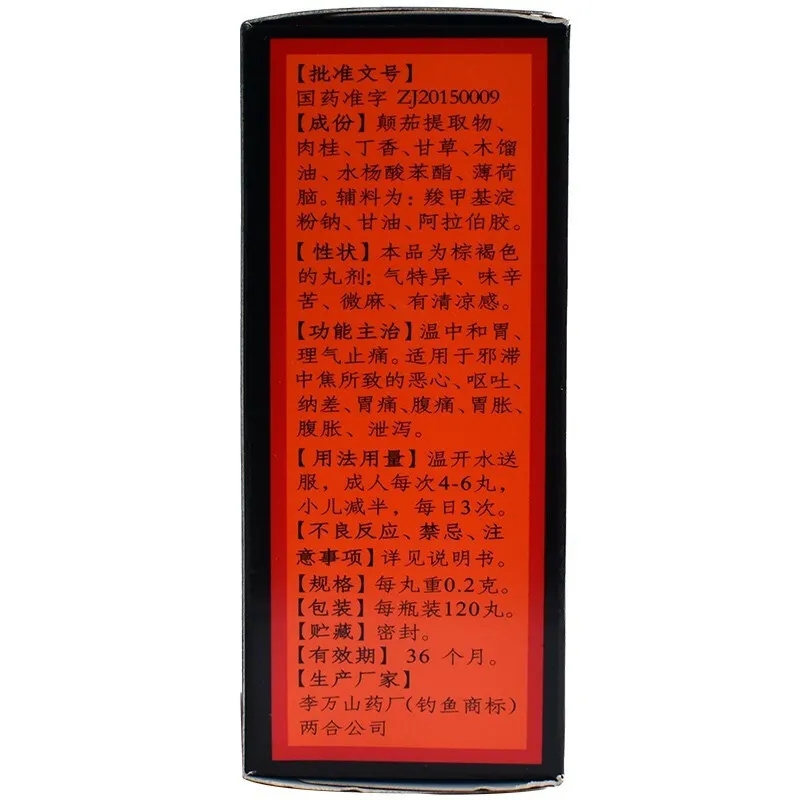 【批准文号】
国药准字 ZJ20150009
【成份】颠茄提取物、
肉桂、丁香、甘草、木馏
油、水杨酸苯酯、薄荷
脑。辅料为：羧甲基淀
粉钠、甘油、阿拉伯胶。
【性状】本品为棕褐色
的丸剂；气特异、味辛
苦、微麻、有清凉感。
【功能主治】温中和胃、
理气止痛。适用于邪滞
中焦所致的恶心、呕吐、
纳差、胃痛、腹痛、胃胀、
腹胀、泄泻。
【用法用量】温开水送
服，成人每次4-6丸，
小儿减半，每日3次。
【不良反应、禁忌、注
意事项】详见说明书。
【规格】每丸重0.2克。
【包装】每瓶装120丸。
【贮藏】密封。
【有效期】36 个月。
【生产厂家】
李万山药厂(钓鱼商标)
两合公司